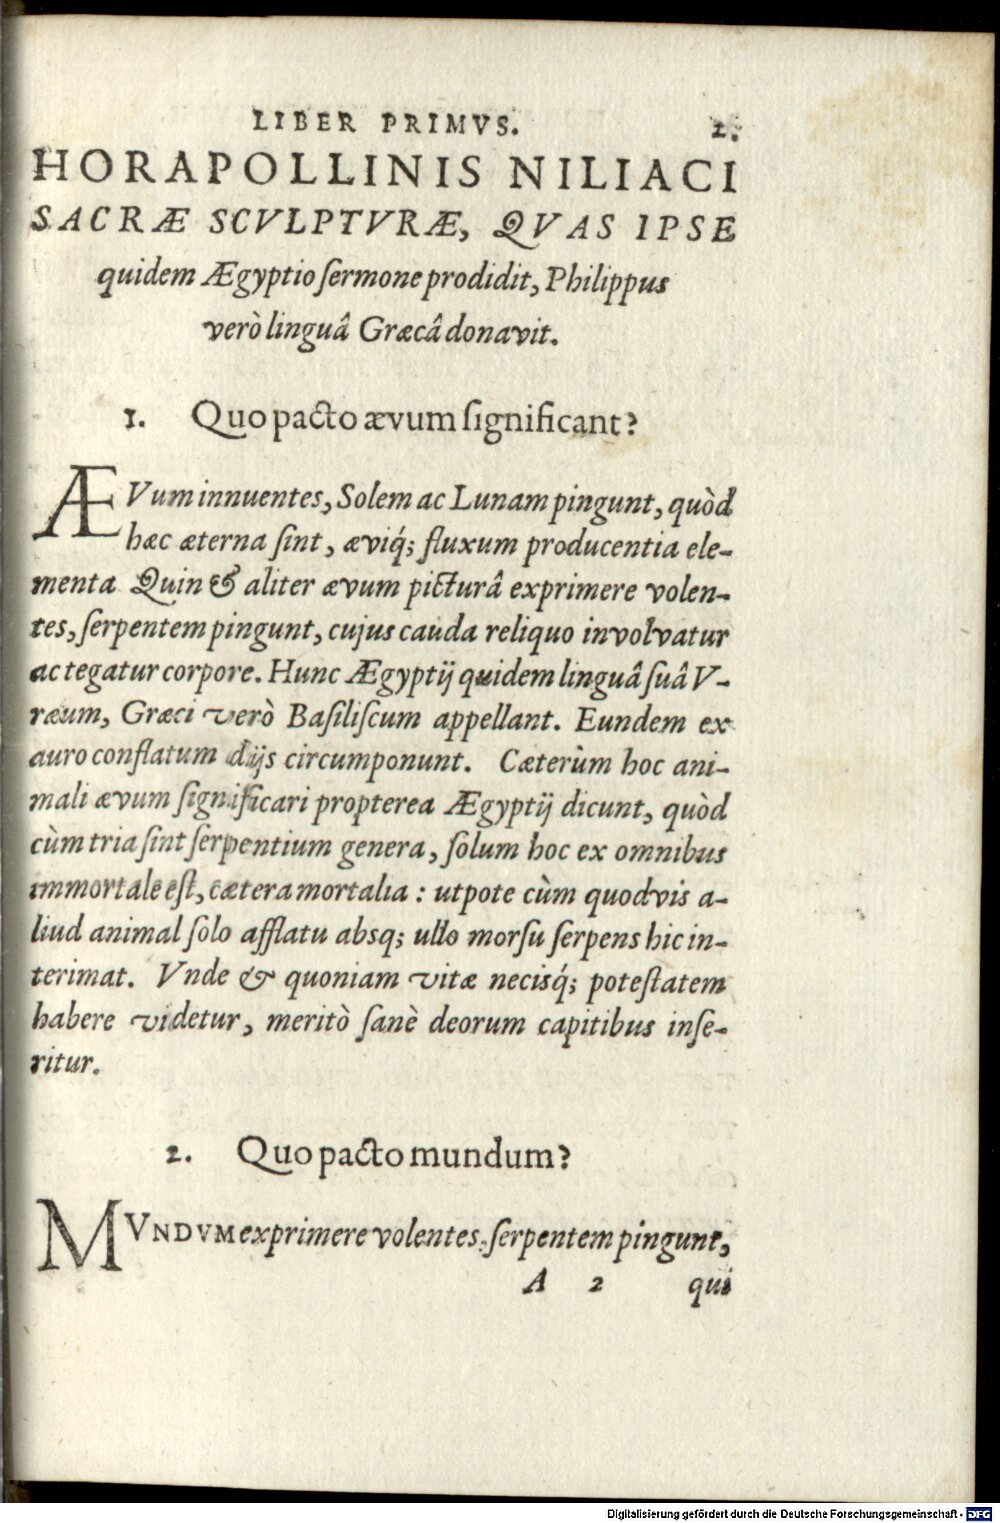 LIBER PRIMVS. 2.
HORAPOLLINIS NILIACI
SACRÆ SCVLPTVRÆ, QVAS IPSE
quidem Ægyptio ſermone prodidit, Philippus
verò linguâ Græcâ donavit.
1. Quo pacto ævum ſignificant?
ÆVum innuentes, Solem ac Lunam pingunt, quòd
hæc æterna ſint, æviq́; fluxum producentia ele-
menta Quin & aliter ævum picturâ exprimere volen-
tes, ſerpentem pingunt, cujus cauda reliquo involvatur
ac tegatur corpore. Hunc Ægyptij quidem linguâ ſuâ V-
ræum, Græci verò Baſiliſcum appellant. Eundem ex
auro conflatum dijs circumponunt. Cæterùm hoc ani-
mali ævum ſignificari propterea Ægyptij dicunt, quòd
cùm tria ſint ſerpentium genera, ſolum hoc ex omnibus
immortale eſt, cætera mortalia : utpote cùm quodvis a-
liud animal ſolo afflatu absq; ullo morſu ſerpens hic in-
terimat. Vnde & quoniam vitæ necisq́; poteſtatem
habere videtur, meritò ſanè deorum capitibus inſe-
ritur.
2. Quo pacto mundum?
MVNDVM exprimere volentes, ſerpentem pingunt,
A 2 qui
Digitalisierung gefördert durch die Deutsche Forschungsgemeinschaft - DFG